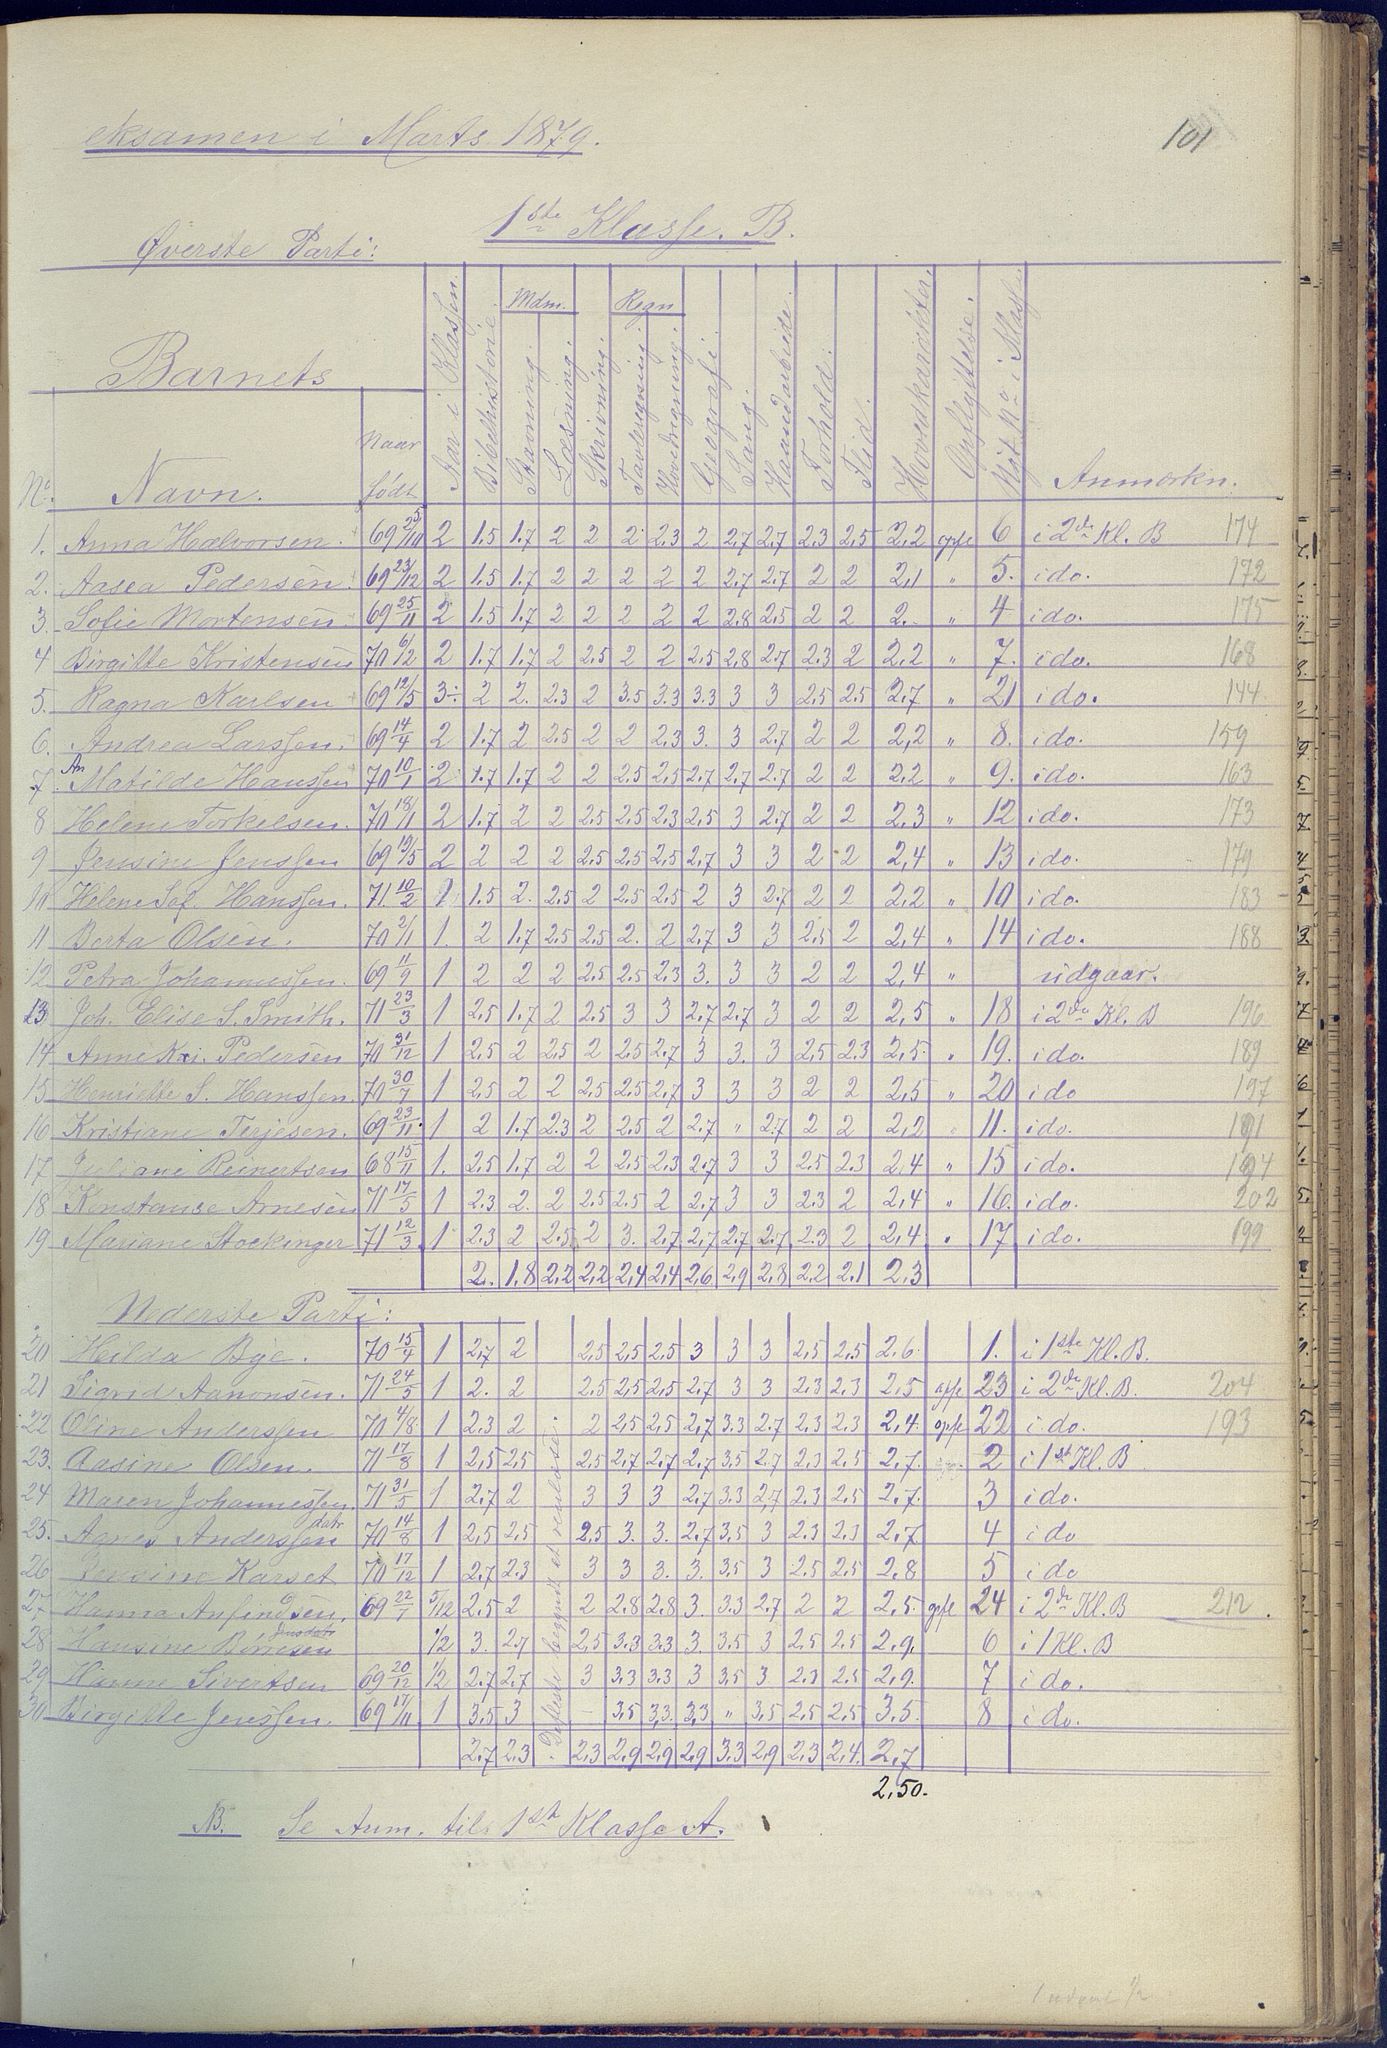 eksamen i Marts 1879.
101
1ste Klasse. B.
Øverste Parti:
Barnets
Mdm. Regn
No. Navn. Naar født Aar i Klassen. Bibelhistorie. Stavning. Læsning. Skrivning. Tavleregning. Hovedregning. Geografi. Sang. Haandarbeide. Forhold. Flid. Hovedkarakter. Opflyttelse. Nyt No i Klasse Anmærkn.
1. Anna Halvorsen. 69 25/10 2 1.5 1.7 2 2 2 2.3 2 2.7 2.7 2.3 2.5 2.2 opfl 6 i 2den Kl. B 174
2. Aasea Pedersen 69 23/12 2 1.5 1.7 2 2 2 2 2 2.7 2.7 2 2 2,1 " 5. i do. 172
3. Sofie Mortensen 69 25/11 2 1.5 1.7 2 2 2 2 2 2.8 2.5 2 2 2. " 4 i do. 175
4 Birgitte Kristensen 70 6/12 2 1.7 1.7 2 2.5 2 2 2.5 2.8 2.7 2.3 2 2,2 " 7. i do. 168
5. Ragna Karlsen 69 12/5 3 2 2. 2.3 2 3.5 3.3 3.3 3 3 2.5 2.5 2.7 " 21 i do. 144
6. Andrea Larssen. 69 14/4 2 1.7 2 2.5 2 2 2.3 3. 3 2.7 2 2 2,2 " 8. i do. 159
7. An Matilde Hanssen 70 10/1 2 1.7 1.7 2 2 2.5 2,5 2,7 2,7 2.7 2 2 2.2 " 9. i do. 163
8 Helene Torkelsen. 70 18/1 2 1.7 2 2 2.5 2.5 2.3 2,5 3 2.7 2 2 2,3 " 12 i do. 173
9 Jensine Jenssen 69 19/5 2 2 2 2 2.5 2.5 2,5 2,7 3 3 2 2 2,4 " 13 i do. 179
10 Helene Sof. Hanssen. 71. 10/2 1 1.5 2. 2.5 2 2.5 2.5 2 3 2.7 2 2 2,2 " 10 i do. 183
11 Berta Olsen. 70 2/1 1. 2 1.7 2.5 2.5 2. 2 2,7 3 3 2.5 2 2,4 " 14 i do. 188
12 Petra Johannessen. 69 11/9 1 2 2 2 2.5 2.5 2.3 3. 3 3 2 2 2,4 " udgaar.
13 Joh. Elise S. Smith. 71 23/3 1 2,5 1.7 2 2.5 3 3 2.7 2,7 3 2 2 2,5 " 18 i 2den Kl. B 196
14 Anne Kri. Pedersen 70 31/12 1 2.5 2 2,5 2 2.5 2.7 3 3. 3 2,5 2.3 2,5. " 19. i do. 189
15 Henriette S. Hanssen. 70 30/7 1 2.5 2 2 2.5 2.5 2,7 3 3 3 2 2 2,5 " 20 i do 197
16 Kristiane Terjesen. 69 23/11 1 2 1.7 2.3 2 2.5 2 2,7 " 2.7 2 2 2,2 " 11. i do. 191
17 Juliane Reinertsen 68 15/11 1. 2.5 1.7 2 2 2.5 2,3 2,7 3 3 2.5 2.3 2,4 " 15 i do. 194
18 Konstanse Arnesen 71 17/5 1 2.3 2. 2 2.5 2.5 2 2,7 3 3 2.3 2 2,4 " 16. i do. 202
19 Mariane Stockinger 71 12/3 1 2.3 2 2.5 2 3. 2,7 2,7 2,7 2,7 2.3 2 2,4. " 17 i do. 199
2. 1,8 2,2 2,2 2,4 2,4 2,6 2,9 2,8 2,2 2,1 2,3
Nederste Parti:
20 Hilda Bye. 70 15/4 1 2,7 2 2,5 2,5 2,5 3 3 3 2,5 2,5 2,6. 1. i 1ste Kl. B.
21 Sigrid Aanonsen. 71 24/5 1 2. 2 2.5 2,5 2,5 2,7 3 3 2.3 2,3 2,5 opfl 23 i 2den Kl. B. 204
22 Oline Anderssen 70 4/8 1 2.3 2 2 2,5 2,5 2,7 3.3 2.7 2,3 2.3 2,4. opfl 22 i do. 193
23. Aasine Olsen. 71 17/8 1 2,5 2,5 2,5 2,7 2,7 2,7 3,5 2.7 2.3 2.5 2,7. 2 i 1ste Kl. B
24 Maren Johannessen. 71 31/5 1 2,7 2 3 3 3 2,7 3.3 2,7 2.3 2,5 2,7. 3 i do.
25. Agnes Anderssen datr 70 14/8 1 2,5 2,5 2,5 3. 3. 2,7 3,5 3 2.3 2.3 2,7 4 i do
26 Karset 70 17/12 1 2,7 2.3 3 3 3. 3. 3,5 3 2.5 2,5 2,8 5 i do
27. Hanna Anfindsen. 69 22/7 5/12 2,5 2 2 2.8 2,8 3. 3.3 2.7 2 2 2,5. opfl 24 i 2den Kl. B 212.
28 Hansine Børresen 1/2 3. 2.7 2,5 3.3 3,3 3. 3,5 3 2.5 2,5 2,9. 6 i 1 Kl. B
29 Hanne Sivertsen 69 20/12 1/2 2.7 2,7 3 3,3 3,3 3 3,5 3. 2.3 2.5 2,9. 7 i do.
30 Birgitte Jenssen. 69 17/11 1 3.5 3 – 3,5 3,3. 3,3 " 3,5 2,5 2,5 3,5. 8 i do.
2,7 2,3 2,3 2,9 2,9 2,9 3.3 2,9 2,3 2,4. 2,7
2,50.
NB. Se Anm. til 1ste Klasse A.